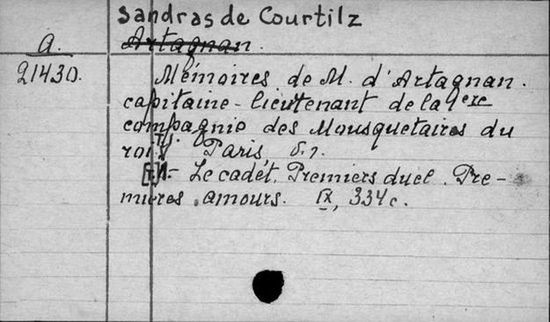 Sandras de Courtilz
A. Artagnan.
21430. Mémoires de M. d'Artagnan.
capitaine-lieutenant de la 1ere
compagnie des Mousquetaires du
roi. Paris, s.
Le cadét. Premiers duel. Pre-
mières amours. IX, 334 c.